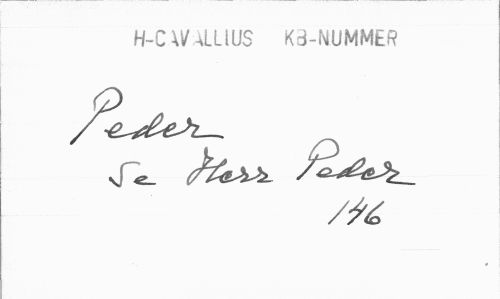 H-CAVALLIUS KB-NUMMER
Peder
Se Herr Peder
146